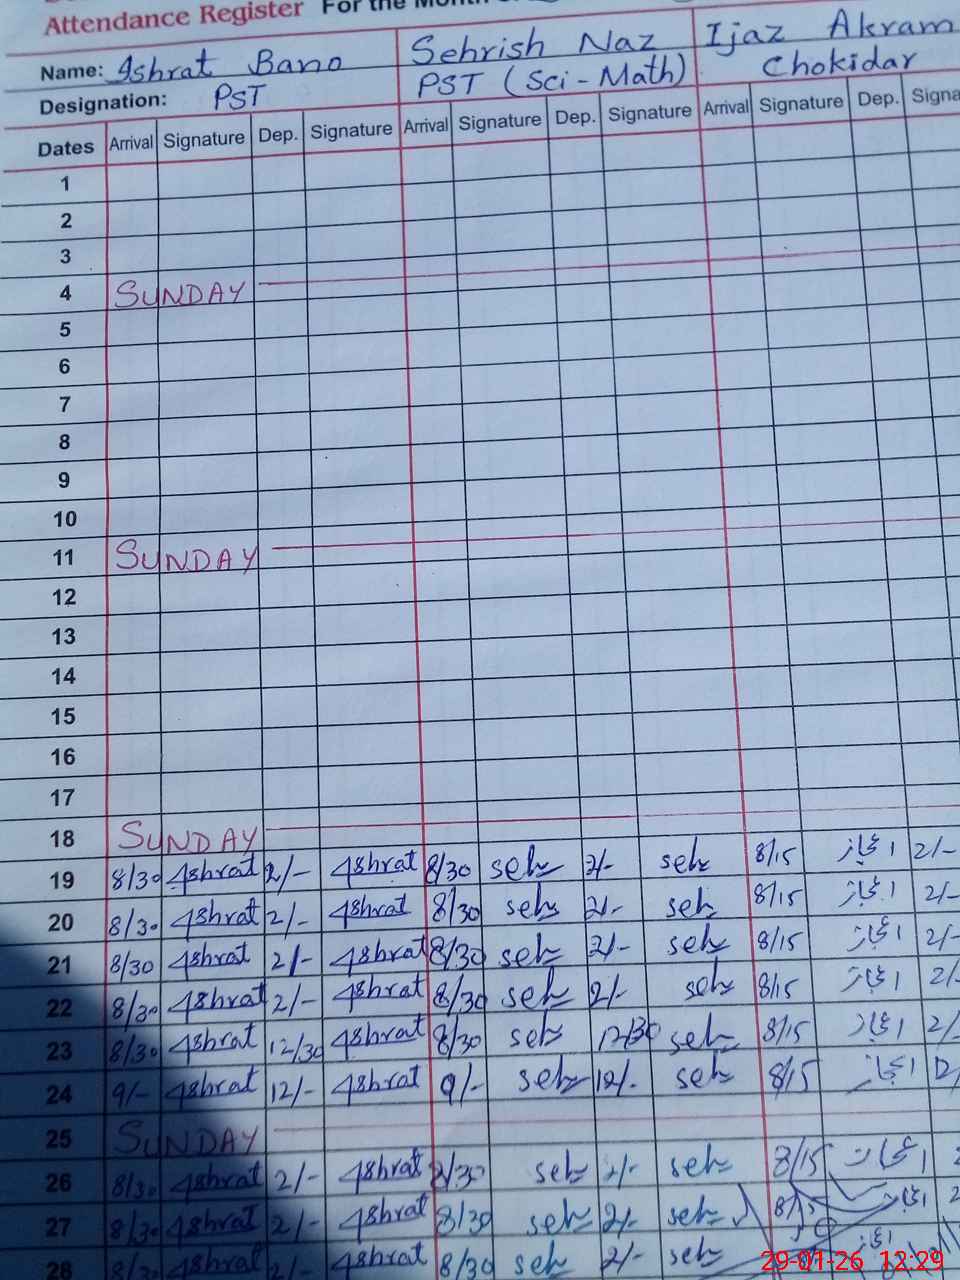 Attendance Register For the Month
Name: Ishrat Bano Sehrish Naz Ijaz Akram
Designation: PST PST (Sci-Math) Chokidar
Dates Arrival Signature Dep. Signature Arrival Signature Dep. Signature Arrival Signature Dep. Signa
1
2
3
4 SUNDAY
5
6
7
8
9
10
11 SUNDAY
12
13
14
15
16
17
18 SUNDAY
19 8/30 Ishrat 2/- Ishrat 8/30 seh 2/- seh 8/15 اعجاز 2/-
20 8/30 Ishrat 2/- Ishrat 8/30 seh 2/- seh 8/15 اعجاز 2/-
21 8/30 Ishrat 2/- Ishrat 8/30 seh 2/- seh 8/15 اعجاز 2/-
22 8/30 Ishrat 2/- Ishrat 8/30 seh 2/- seh 8/15 اعجاز 2/-
23 8/30 Ishrat 12/30 Ishrat 8/30 seh 12/30 seh 8/15 اعجاز 2/-
24 9/- Ishrat 12/- Ishrat 9/- seh 12/- seh 8/15 اعجاز 12/
25 SUNDAY
26 8/30 Ishrat 2/- Ishrat 8/30 seh 2/- seh 8/15 اعجاز 2
27 8/30 Ishrat 2/- Ishrat 8/30 seh 2/- seh 8/15 اعجاز 2
28 8/30 Ishrat 2/- Ishrat 8/30 seh 2/- seh اعجاز
29-01-26 12:29